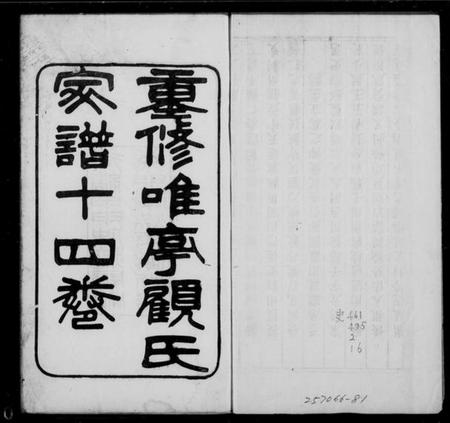 重修唯亭顧氏
家譜十四卷
史 461
495
2
16
257066-81